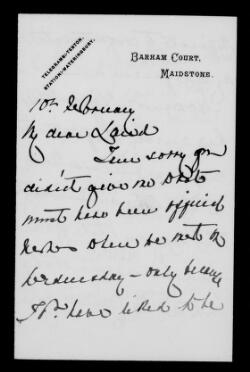 TELEGRAMS-TESTON.
STATION-WATERINGBURY.
BARHAM COURT,
MAIDSTONE.
10th February
My dear Laird
I am sorry you
didn't give me what
must have been official
when we met on
Wednesday - only because
I'd have liked to be